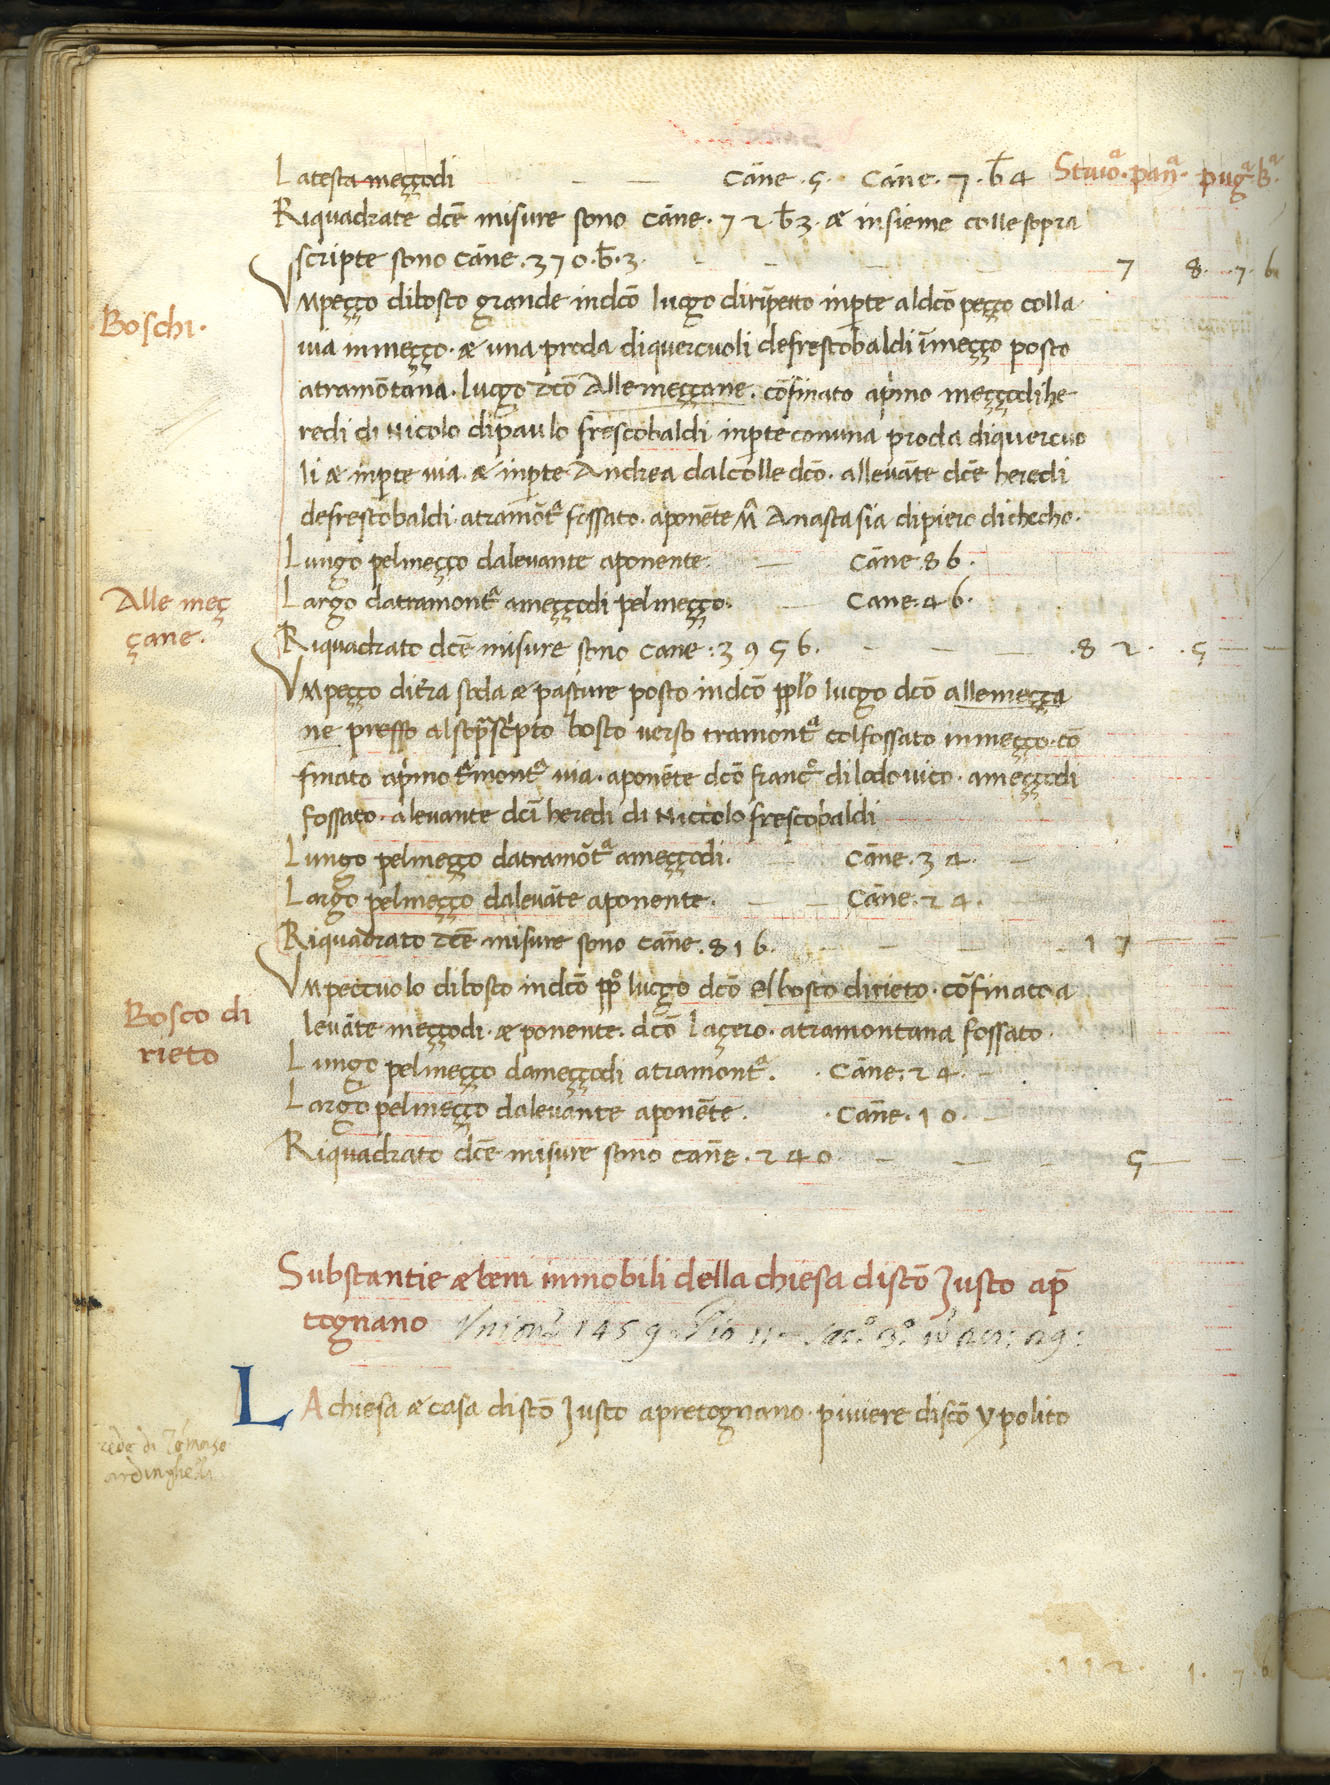 Latesta meççodi — — Cāne · 5 · Cāne · 7 · b̄ 4 Staioᵃ · panᵃ · pugᵃ bᵃ ·
Riquadrate dcē misure sono Cāne · 72 · b̄ 3 · æ insieme colle sopra
scripte sono Cāne · 370 · b̄ · 3 · — — 7 8 · 7 · 6
Boschi ·
Vmpeçço dibosco grande indcō luogo diripetto inparte aldcō peçço colla
uia inmeçço · æ una proda diquercuoli defrescobaldi īmeçço posto
atramōtana · luogo dcō Allemeççane · cōfinato aprimo meççodi he
redi di Nicolo dipaulo frescobaldi inparte conuna proda diquercuo
li æ inparte uia · æ inparte Andrea dalcolle dcō · alleuāte dcē heredi
defrescobaldi · atramōtᵃ fossato · aponēte Mᵃ Anastasia dipiero dichecho ·
Lungo pelmeçço daleuante aponente · — Cāne · 86 ·
Alle meç
çane ·
Largo datramontᵃ ameççodi pelmeçço · Cane · 46 ·
Riquadrato dcē misure sono Cane : 3956 · — — — · 8 2 · · 5 — —
Vmpeçço ditrᵃ soda æ pasture posto indcō pplo luogo dcō allemeçça
ne presso alsoprascripto bosco uerso tramontᵃ colfossato inmeçço · cō
finato aprimo trᵃmontᵃ uia · aponēte dcō francᵒ dilodouico · ameççodi
fossato · aleuante dcī heredi di Niccolo frescobaldi
Lungo pelmeçço datramōtᵃ ameççodi · — Cāne · 34 · —
Largo pelmeçço daleuāte aponente · — — Cāne · 24 ·
Riquadrato dcē misure sono Cañe · 816 · — — — 17 —
Vmpeccuolo dibosco indcō ppᵒ luogo dcō el bosco dirieto · cōfinato a
Bosco di
rieto
leuāte meççodi · æ ponente · dcō laçero · atramontana fossato ·
Lungo pelmeçço dameççodi atramontᵃ · · Cāne : 24 · —
Largo pelmeçço daleuante aponēte · · Cañe · 10 · —
Riquadrato dcē misure sono cañe · 240 · — — — 5 —
Substantie æ beni inmobili della chiesa discō Justo ap̄
tognano 1459
LA chiesa æ casa discō Justo apretognano · piuiere discō ypolito
rede di Tomaso
ardinghelli
· 112 · 1 · 7 · 6